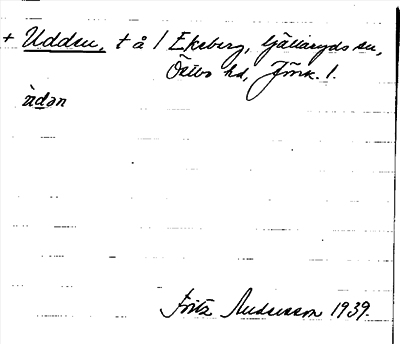 + Udden, t å 1 Ekeberg, Gällaryds sn,
Östbo hd, Jönk. l.
ùdən
Fritz Andersson 1939.